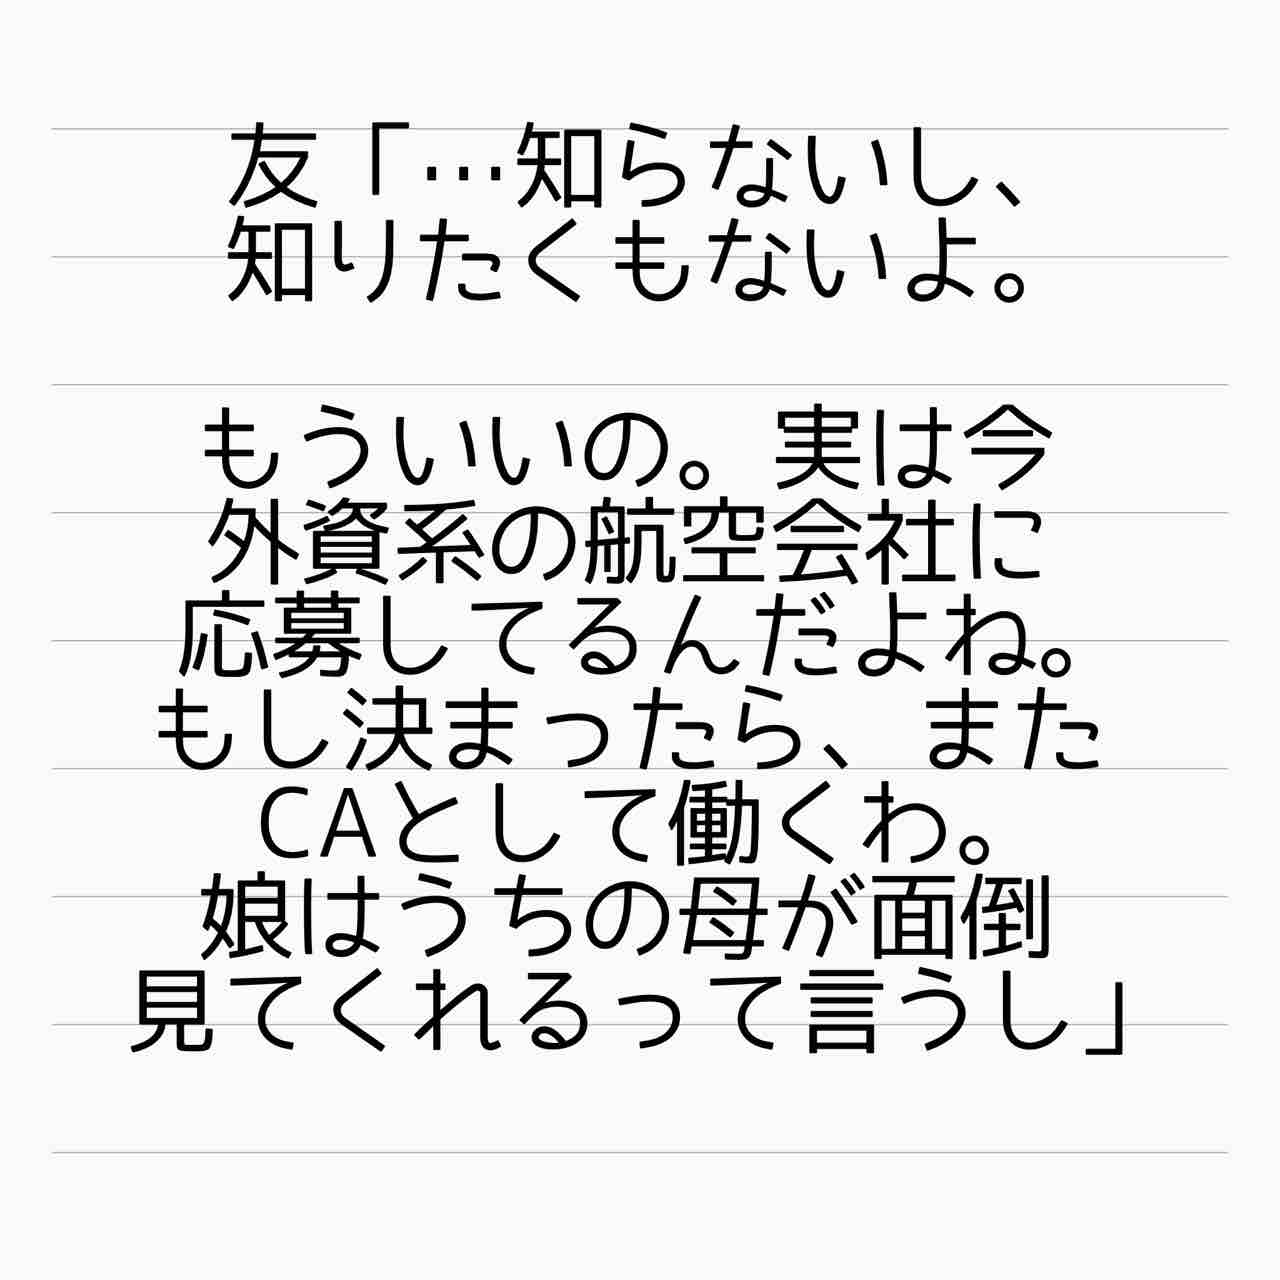 友「…知らないし、
知りたくもないよ。
もういいの。実は今
外資系の航空会社に
応募してるんだよね。
もし決まったら、また
CAとして働くわ。
娘はうちの母が面倒
見てくれるって言うし」